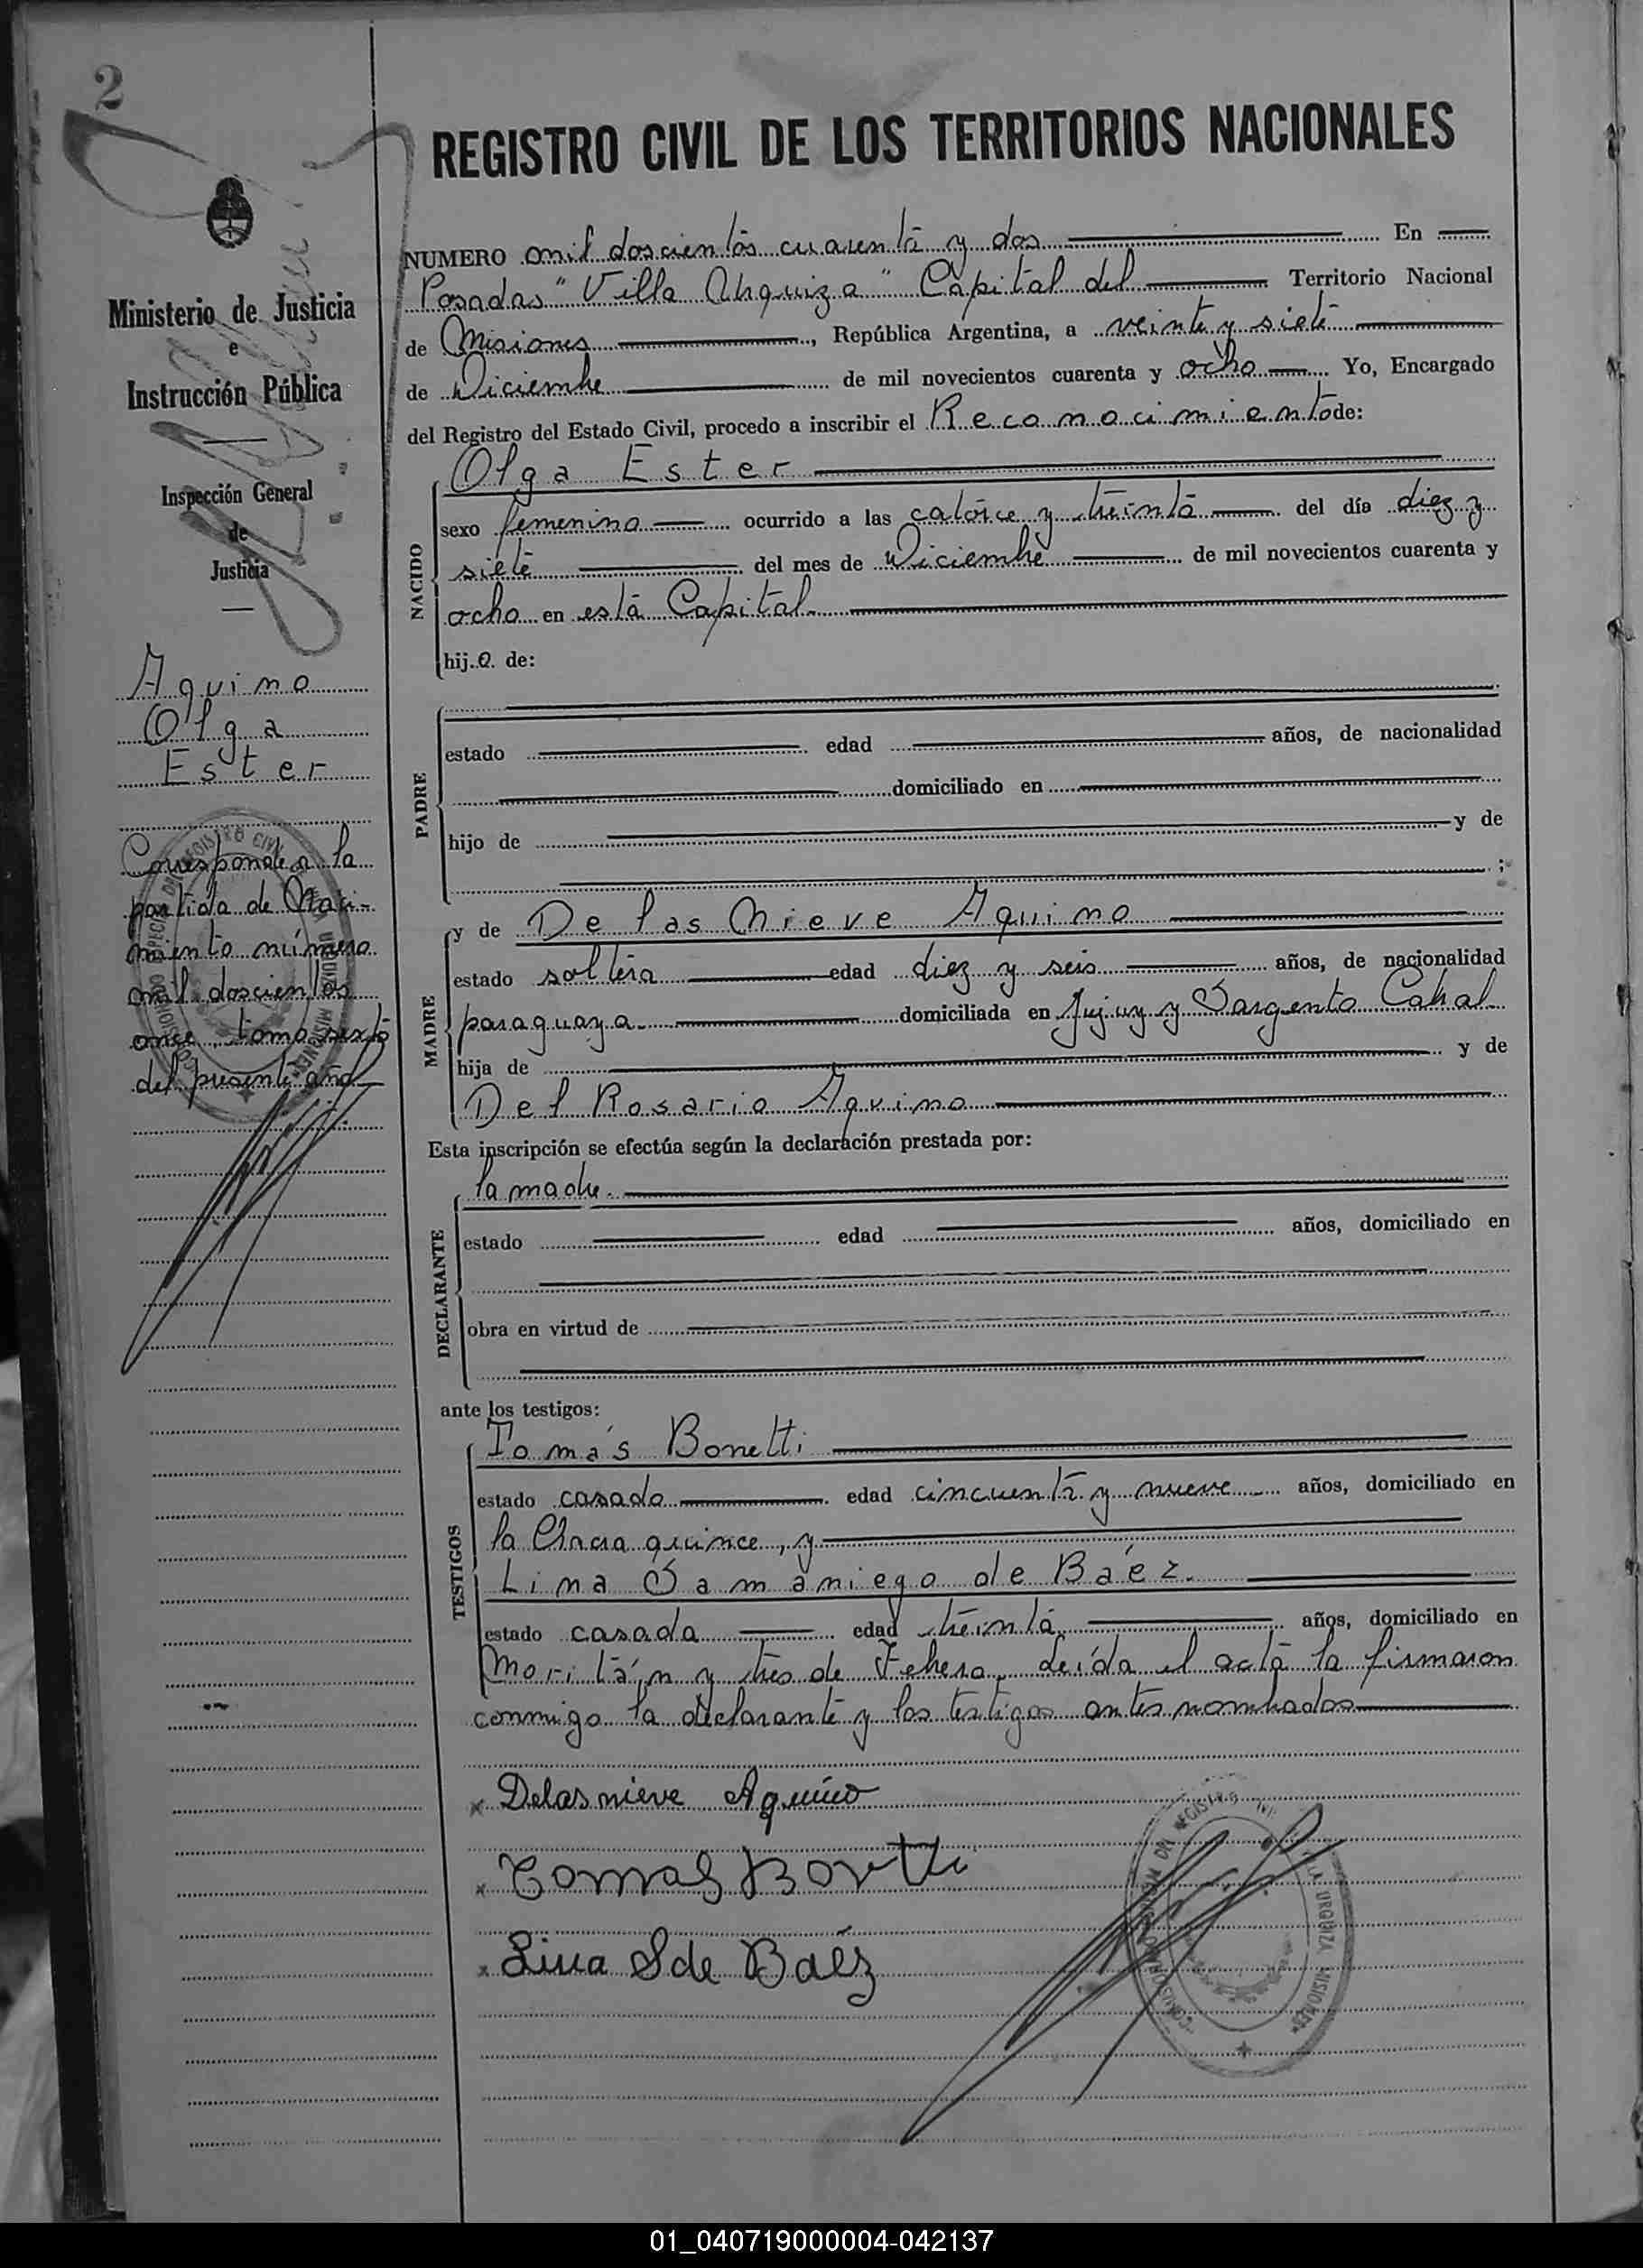 2
REGISTRO CIVIL DE LOS TERRITORIOS NACIONALES
Ministerio de Justicia
e
Instrucción Pública
Inspección General
de
Justicia
Aquino
Olga
Ester
Corresponde a la
partida de Naci-
miento número
mil doscientos
once, tomo sexto
del presente año
NUMERO mil doscientos cuarenta y dos En
Posadas "Villa Urquiza" Capital del Territorio Nacional
de Misiones, República Argentina, a veinte y siete
de Diciembre de mil novecientos cuarenta y ocho Yo, Encargado
del Registro del Estado Civil, procedo a inscribir el Reconocimiento de:
Olga Ester
NACIDO
sexo femenino ocurrido a las catorce y treinta del día diez y
siete del mes de Diciembre de mil novecientos cuarenta y
ocho en esta Capital.
hija de:
PADRE
estado edad años, de nacionalidad
domiciliado en
hijo de y de
;
MADRE
y de De las Nieve Aquino
estado soltera edad diez y seis años, de nacionalidad
paraguaya domiciliada en Jujuy y Sargento Cabral
hija de y de
Del Rosario Aquino
Esta inscripción se efectúa según la declaración prestada por:
la madre.
DECLARANTE
estado edad años, domiciliado en
obra en virtud de
ante los testigos:
TESTIGOS
Tomás Bonetti
estado casado edad cincuenta y nueve años, domiciliado en
la Chacra quince, y
Lina Samaniego de Báez.
estado casada edad treinta años, domiciliado en
y tres de Febrero. Leída el acta la firmaron
conmigo la declarante y los testigos antes nombrados
x Delasnieve Aquino
x Tomas Bonetti
x Lina S de Baéz
URQUIZA MISIONES
01_040719000004-042137